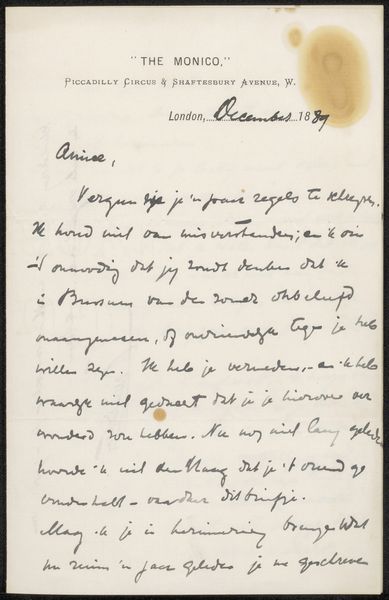 "THE MONICO,"
PICCADILLY CIRCUS & SHAFTESBURY AVENUE, W.
London, December 1889
Amice,
Vergun mij je 'n paar regels te schrijven.
Ik houd niet van misverstanden, en 'k
onnoodig dat jij zoudt denken dat 'k
in Bussum van den zomer onbeleefd
, of onvriendelijk tegen je heb
willen zijn. Ik heb je vermeden, - en 'k heb
waarlijk niet gedacht dat je je hierover
verwonderd zou hebben. Nu nog niet lang geleden
hoorde 'k uit den Haag dat je 't vreemd ge-
vonden hebt - vandaar dit briefje.
Mag 'k je in herinnering brengen wat
nu ruim 'n jaar geleden je me geschreven